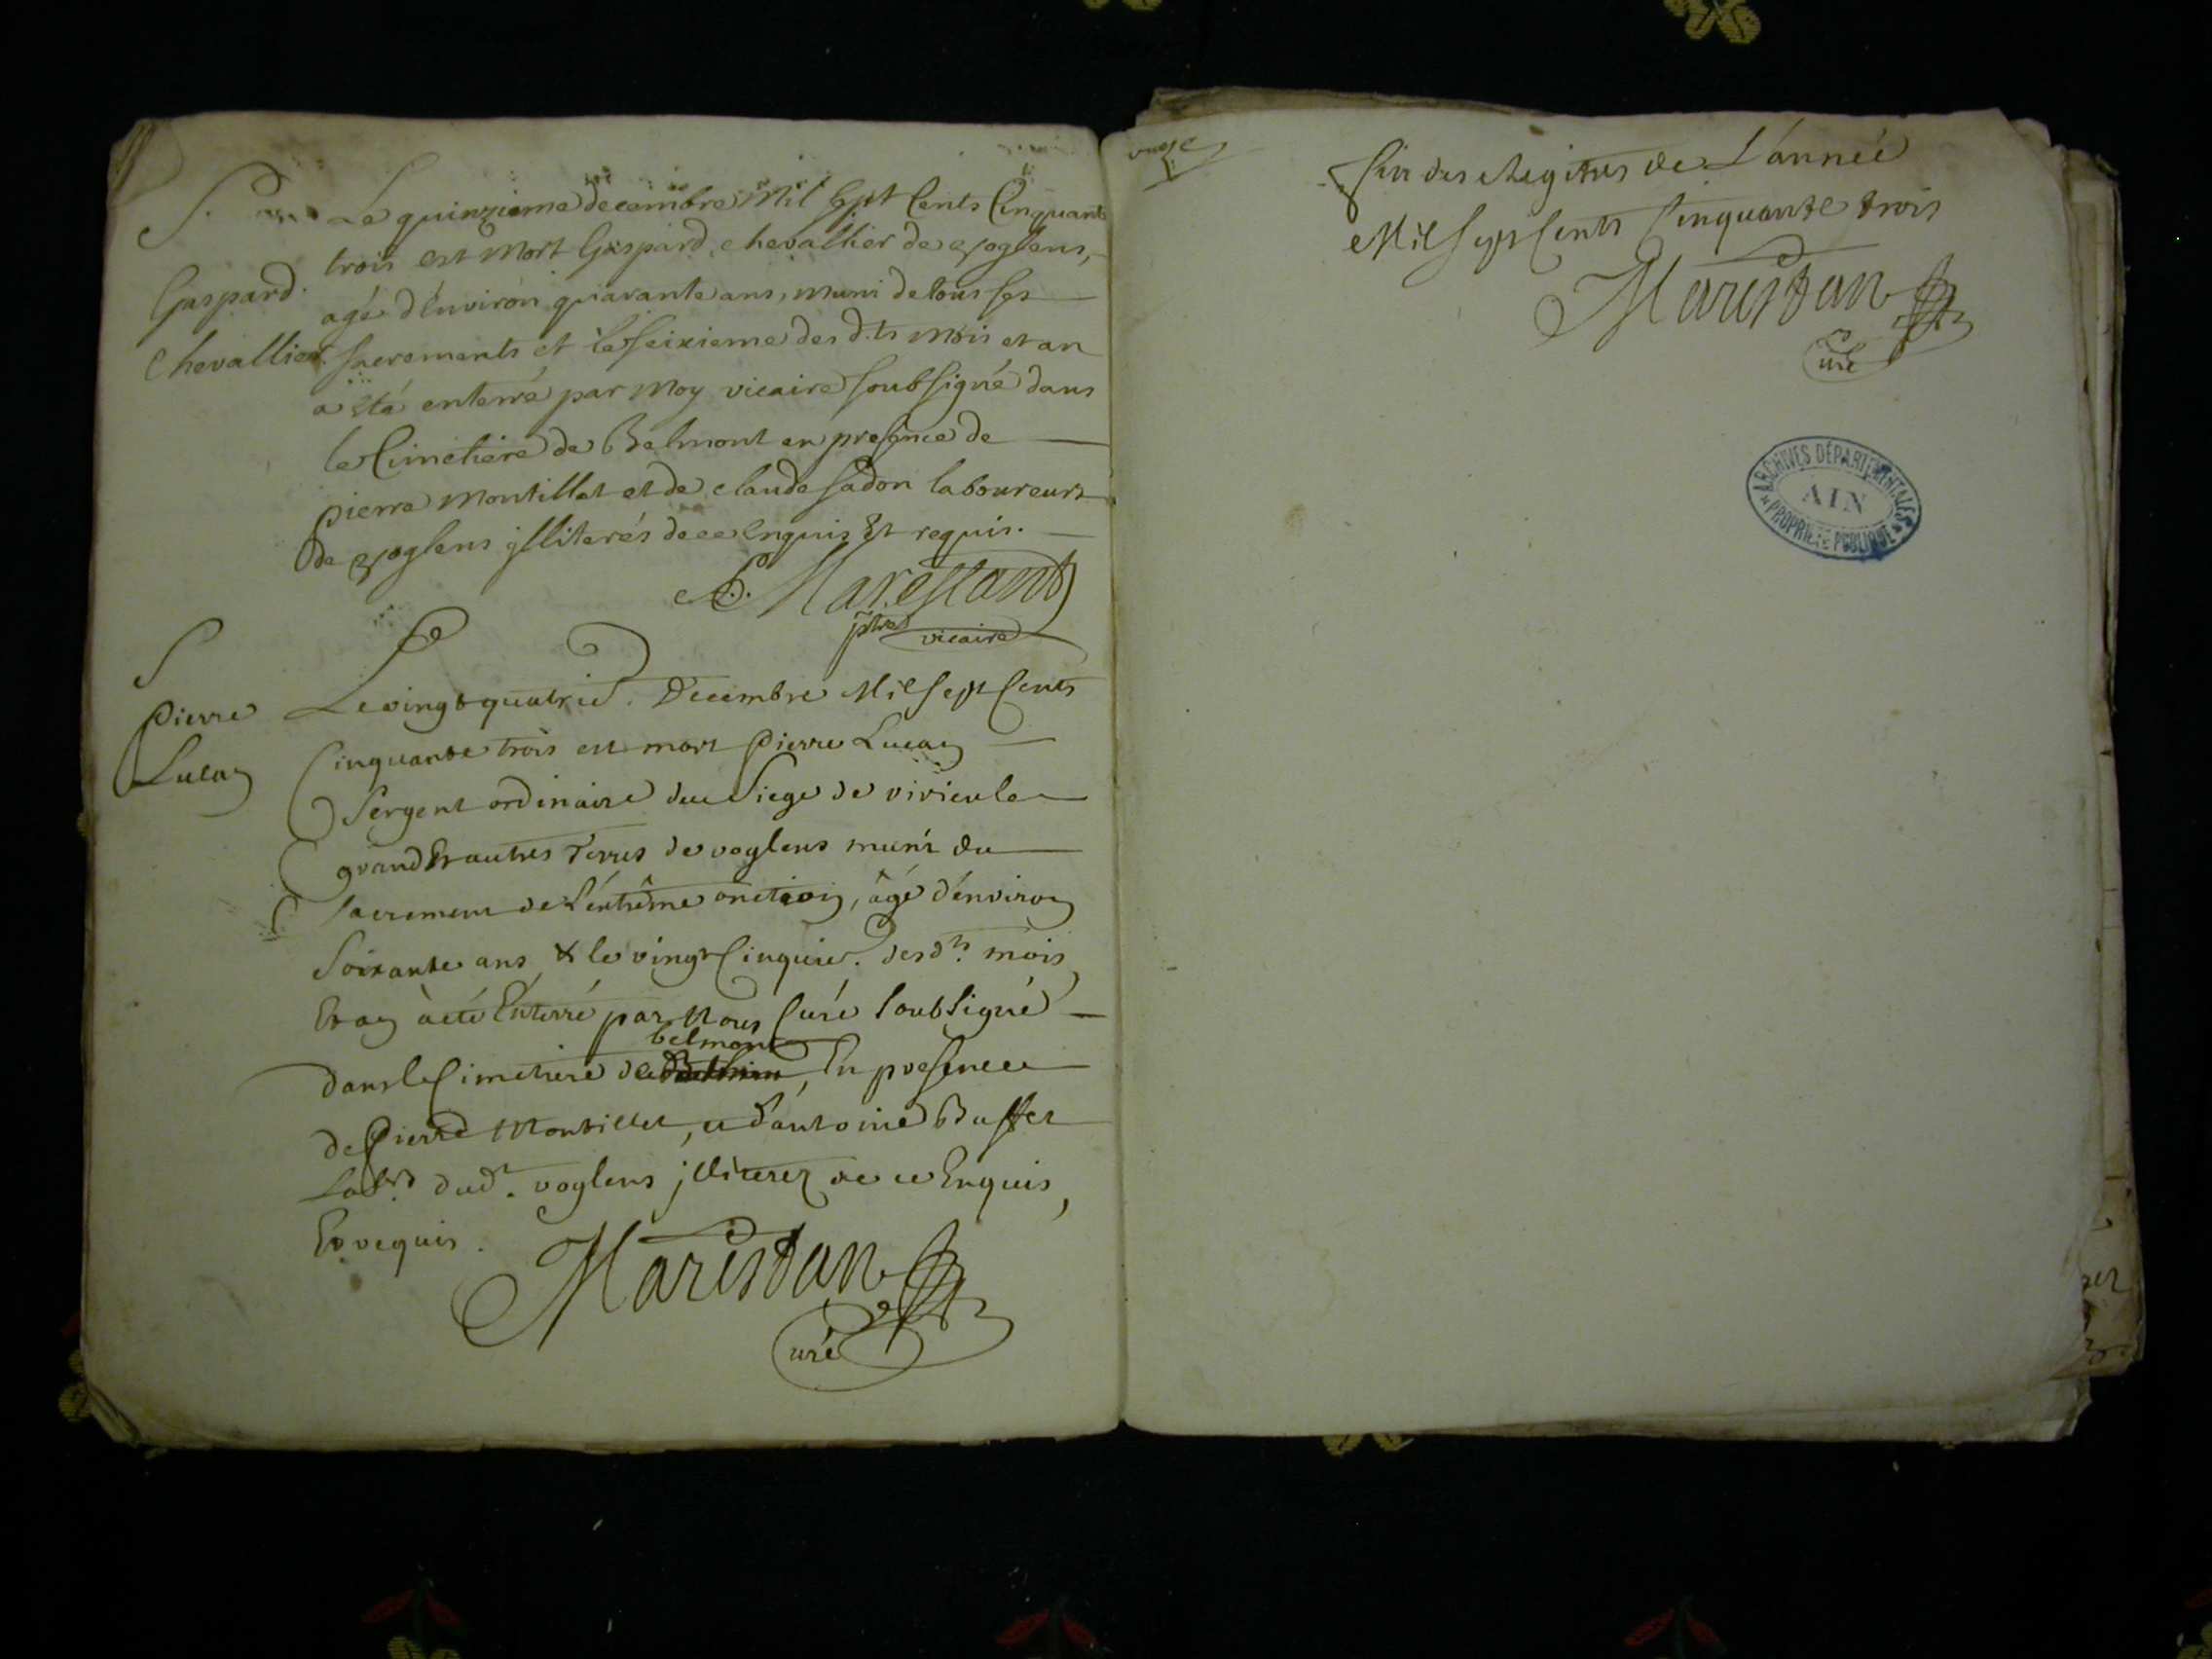 S.
Gaspard.
Chevallier.
Le quinzieme decembre Mil Sept Cents Cinquante
trois est Mort Gaspard chevallier de voglens,
agé d'Environ quarante ans, muni de tous ses
sacrements et le seixieme des d.ts Mois et an
a été enterré par Moy vicaire soubsigné dans
le Cimetiere de Belmont en presence de
pierre Montillet et de claude sadon laboureurs
de voglens illiterés de ce Enquis Et requis.
Marestant
ptre vicaire
S
Pierre
Lucan
Le vingt quatrie. Decembre Mil Sept Cents
Cinquante trois est mort Pierre Lucan
Sergent ordinaire du Siege de virieu le
grand Et autres Terres de voglens muni du
sacrement de L'éxtrême onction, âgé d'énviron
Soixante ans & le vingt Cinquie. desd.ts mois
Et an à été Enterré par Nous Curé soubsigné
belmont
dans le Cimetiere de, En presence
de Pierre Montillet, et d'antoine Buffet
Lab.rs dud.t voglens jlliterez de ce Enquis,
Et requis.
Marestan
Curé
onze
Fin des Regitres de L'année
Mil Sept Cents Cinquante trois
Marestan
Curé
ARCHIVES DÉPARTEMENTALES
AIN
PROPRIÉTÉ PUBLIQUE